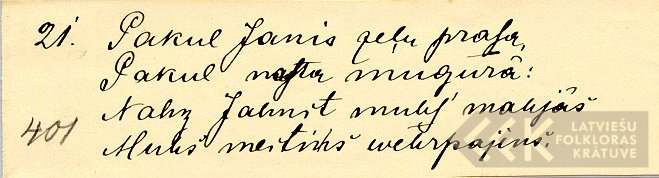 21. Pakul Janis zeļu praſa,
Pakul naſta mugurā:
Nahz Jahnit muhſ mahjās
401 Muhſ meitiņs wehrpajiņs.
LATVIEŠU
FOLKLORAS
KRĀTUVE